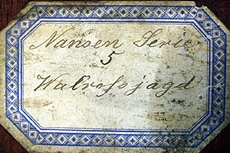 Nansen Serie
5
Walroßjagd